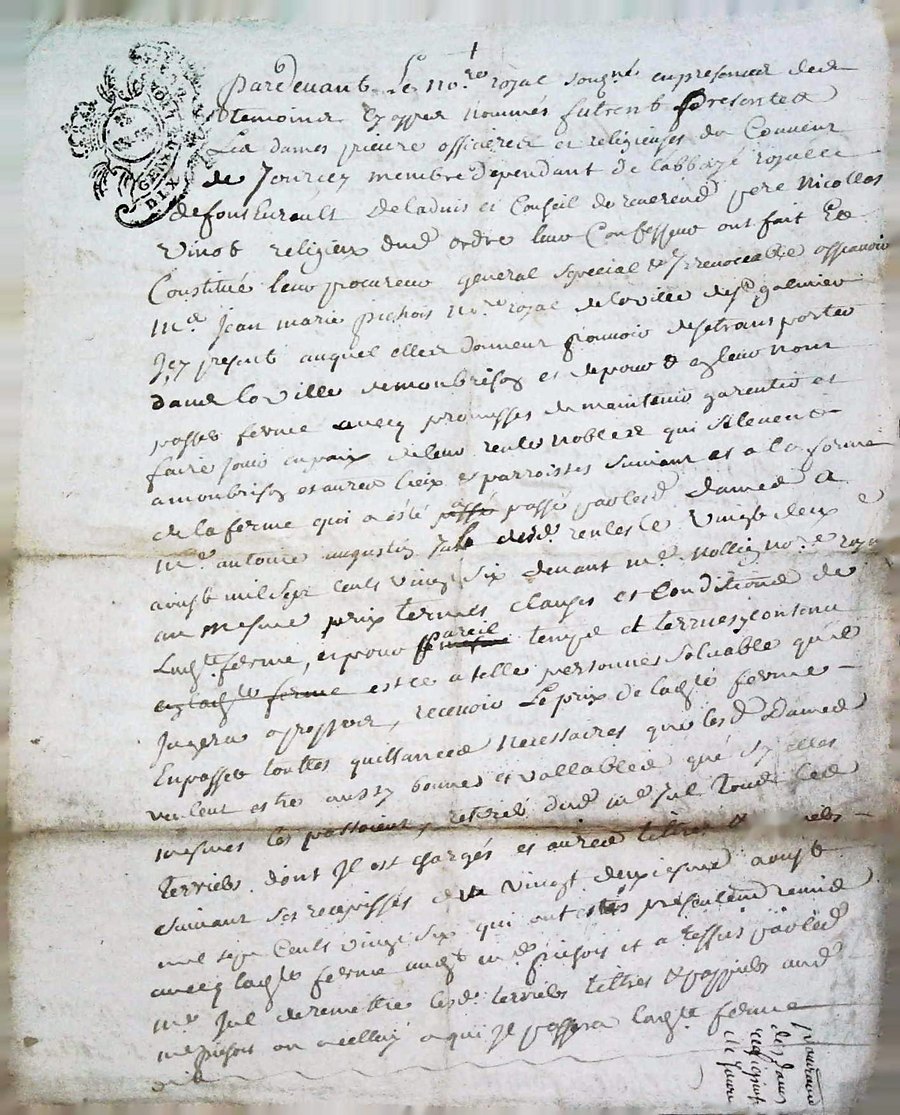 GEN · DE LION
DIX
1
Pardevant Le no.re royal soügné en presence des
temoins Cy apprez nommes furent presentes
Les dames prieure officieres et religieuses du Couvent
de Jourcey membre dependant de labbayé royalle
de fonteurault De ladvis et Conseil de reverend pere Nicollas
Vinot religieux dud ordre leur Confesseur ont fait Et
Constitué leur procureur general special & Jrrevocable
Me Jean marie pichois no.re royal de la ville de st galmier
Jcy present auquel elles donnent pouvoir de se transporter
dans la ville de montbrison et de pour & en leur nom
passer ferme avecq promesses de maintenir garentir et
faire jouir en paix de leur rente noble qui se levent
a monbrison et autres lieux et parroisses suivant et a la forme
de la ferme qui a esté passé passé par lesd dames a
me antoine augustin Jul desd rentes le vingt deux e
aoust mil sept cents vingt six devant me no.re royal
au mesme prix termes clauses et Conditions de
ladte ferme, et pour pareil temps et termes y contenu
en ladte ferme et ce a telle personnes soluable quil
Jugera a propper, recevoir Le prix de ladte ferme
En passer touttes quittances necessaires que lesd Dames
veulent estre aussy bonnes et vallables que sy elles
mesmes les passoient, retirer dud me Jul Tous les
terriers dont Jl est chargés et autres tiltres &
suivant ses recepisses du vingt deuxiesme aoust
mil sept Cents vingt six qui ont estés presentem remis
avecq ladte ferme aud me pichois et a par lesd
me Jul de remettre lesd terriers tiltres & pappiers aud
me pichois ou a celluy a qui Jl passera ladte ferme
pour
des dames
religieuses
de Jource